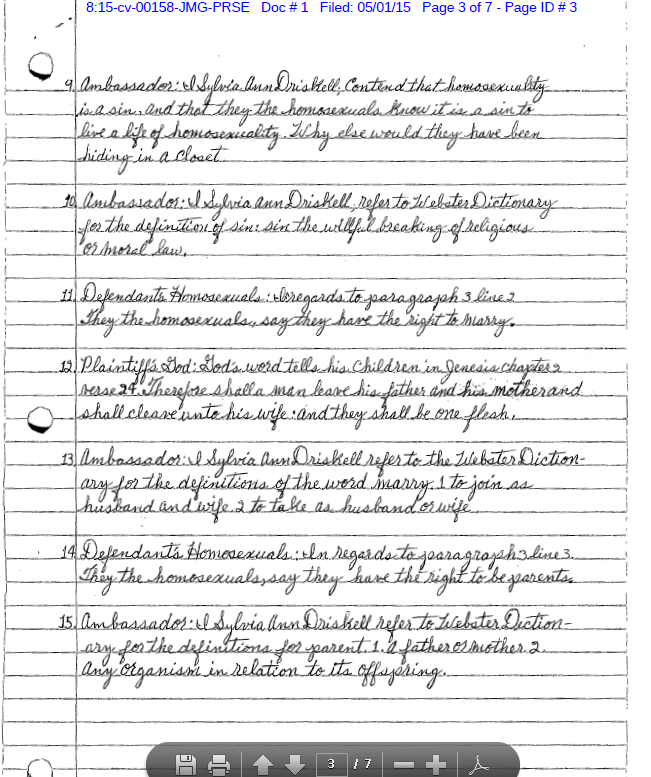 8:15-cv-00158-JMG-PRSE Doc # 1 Filed: 05/01/15 Page 3 of 7 - Page ID # 3
9. Ambassador: I Sylvia Ann Driskell, Contend that homosexuality
is a sin, and that they the homosexuals know it is a sin to
live a life of homosexuality. Why else would they have been
hiding in a closet.
10. Ambassador: I Sylvia Ann Driskell, refer to Webster Dictionary
for the definition of sin: sin the willful breaking of religious
or moral law.
11. Defendant's Homosexuals: In regards to paragraph 3 line 2
They the homosexuals, say they have the right to marry.
12. Plaintiff's God: God's word tells his children in Jenesis chapter 2
verse 24. Therefore shall a man leave his father and his mother and
shall cleave unto his wife: and they shall be one flesh.
13. Ambassador: I Sylvia Ann Driskell refer to the Webster Diction-
ary for the definitions of the word marry. 1 to join as
husband and wife. 2 to take as husband or wife.
14. Defendant's Homosexuals: In regards to paragraph 3 line 3.
They the homosexuals, say they have the right to be parents.
15. Ambassador: I Sylvia Ann Driskell refer to Webster Diction-
ary for the definitions for parent. 1. a father or mother. 2.
any organism in relation to its offspring.
3 / 7